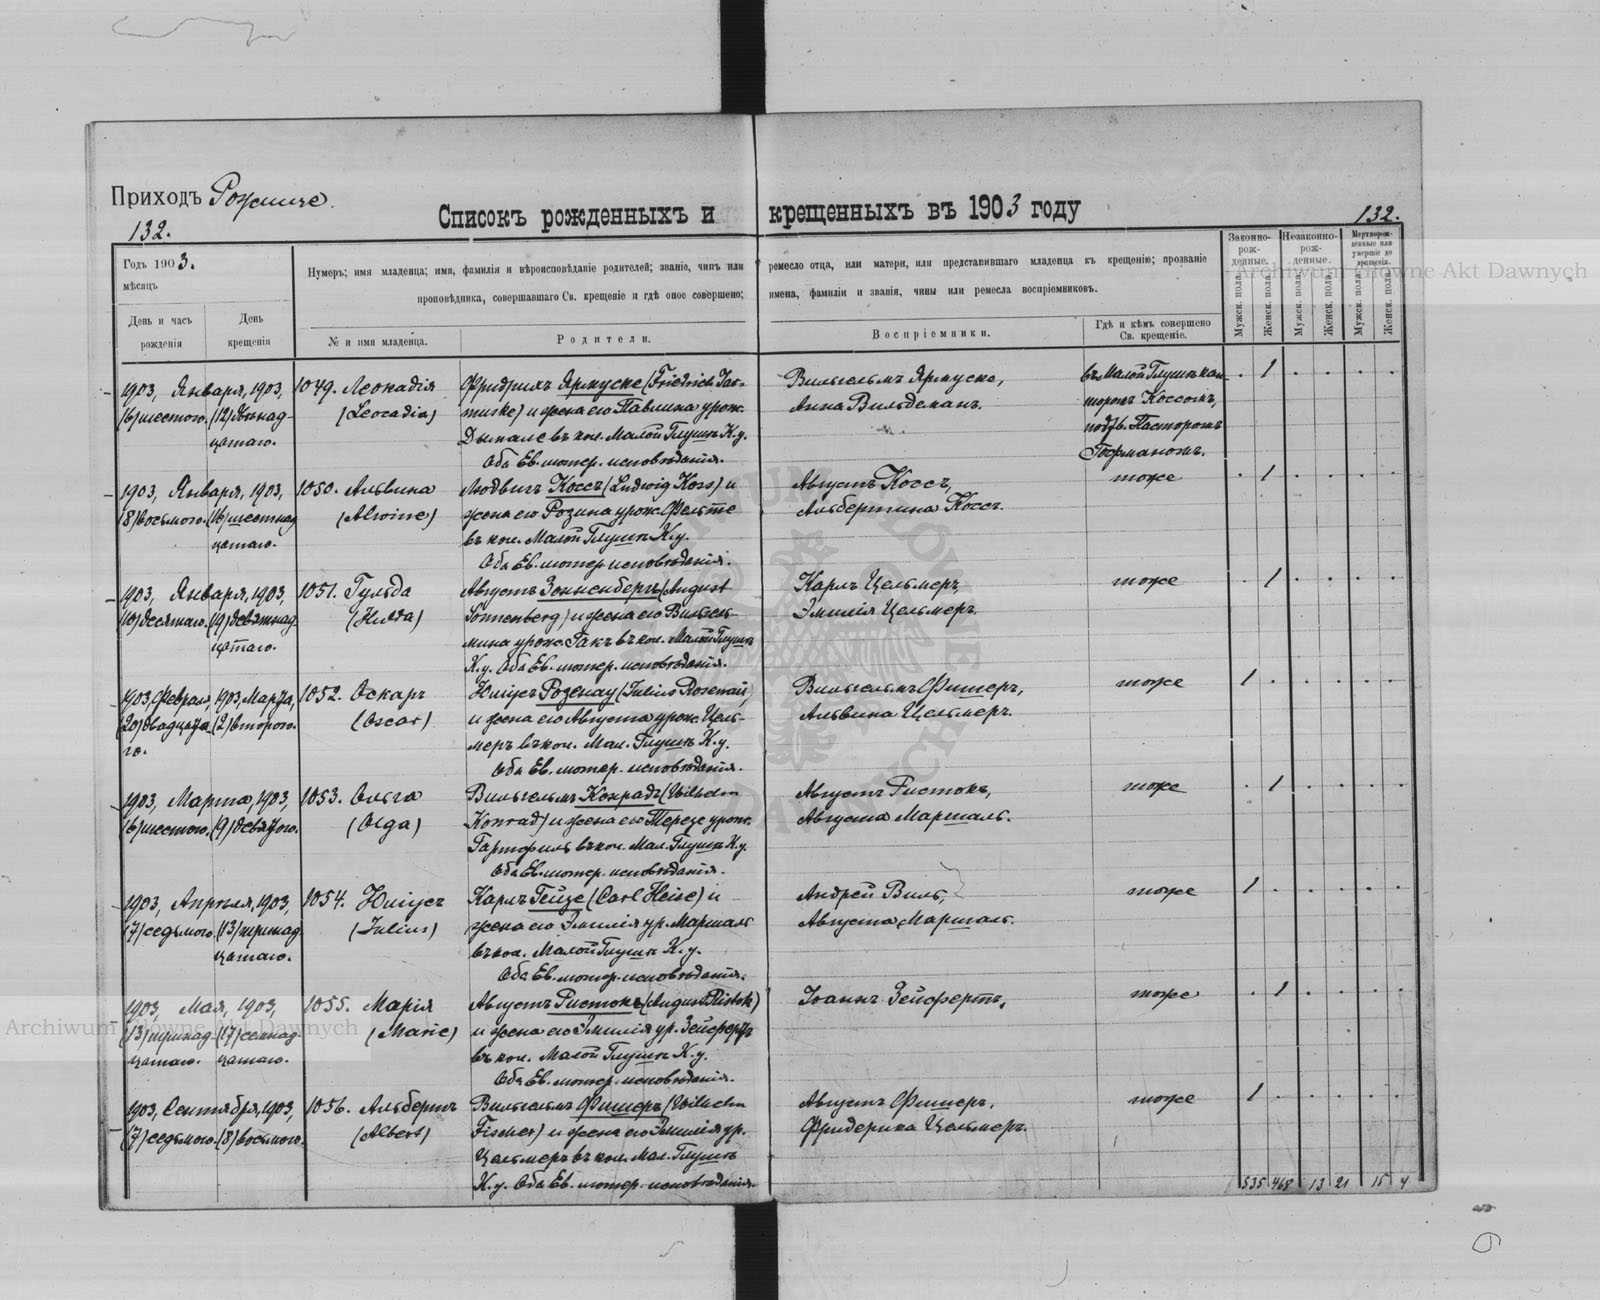 Приходъ Рожище.
132.
Списокъ рожденныхъ и крещенныхъ въ 1903 году
132.
Годъ 1903.
мѣсяцъ
День и часъ рожденія
День крещенія
Нумеръ; имя младенца; имя, фамилія и вѣроисповѣданіе родителей; званіе, чинъ или ремесло отца, или матери, или представившаго младенца къ крещенію; прозваніе
проповѣдника, совершавшаго Св. крещеніе и гдѣ оное совершено; имена, фамиліи и званія, чины или ремесла воспріемниковъ.
№ и имя младенца.
Родители.
Воспріемники.
Гдѣ и кѣмъ совершено Св. крещеніе.
Законно-рож-денные.
Незаконно-рож-денные.
Мертворож-денные или умершіе до крещенія.
Мужск. пола.
Женск. пола.
Мужск. пола.
Женск. пола.
Мужск. пола.
Женск. пола.
1903, Января, 1903,
(6) шестого. (12) двѣнад-
цатаго.
1049. Леокадія
(Leocadia)
Фридрихъ Ярмуске (Friedrich Jar-
muske) и жена его Павлина урож.
въ кол. Малой Глушѣ К.у.
Оба Ев. лютер. исповѣданія.
Вильгельмъ Ярмуске,
Анна Вильдеманъ.
въ Малой Глушѣ кан-
торомъ Коссомъ,
подтв. Пасторомъ
Гофманомъ.
. 1 . . . .
1903, Января, 1903,
(8) восьмого. (16) шестнад-
цатаго.
1050. Альвина
(Alwine)
Людвигъ Коссъ (Ludwig Koss) и
жена его Розина урож. Фельтъ
въ кол. Малой Глушѣ К.у.
Оба Ев. лютер. исповѣданія.
Августъ Коссъ,
Альбертина Коссъ.
тоже
. 1 . . . .
1903, Января, 1903,
(10) десятаго. (19) девятнад-
цатаго.
1051. Гульда
(Hulda)
Августъ Зонненбергъ (August
Sonnenberg) и жена его Вильгель-
мина урож. Гакъ въ кол. Малой Глушѣ
К.у. Оба Ев. лютер. исповѣданія.
Карлъ Цельмеръ,
Эмилія Цельмеръ.
тоже
. 1 . . . .
1903, Февраля, 1903, Марта,
(20) двадцата- (2) второго.
го.
1052. Оскаръ
(Oscar)
Юліусъ Розенау (Julius Rosenau)
и жена его Августа урож. Цель-
меръ въ кол. Мал. Глушѣ К.у.
Оба Ев. лютер. исповѣданія.
Вильгельмъ Фишеръ,
Альвина Цельмеръ.
тоже
1 . . . . .
1903, Марта, 1903,
(6) шестого. (9) девятого.
1053. Ольга
(Olga)
Вильгельмъ Конрадъ (Wilhelm
Konrad) и жена его Терезе урож.
Гартфиль въ кол. Мал. Глушѣ К.у.
Оба Ев. лютер. исповѣданія.
Августъ Ристокъ,
Августа Маршаль.
тоже
. 1 . . . .
1903, Апрѣля, 1903,
(7) седьмого. (13) тринад-
цатаго.
1054. Юліусъ
(Julius)
Карлъ Гейзе (Carl Heise) и
жена его Эмилія ур. Маршаль
въ кол. Малой Глушѣ К.у.
Оба Ев. лютер. исповѣданія.
Андрей Виль,
Августа Маршаль.
тоже
1 . . . . .
1903, Мая, 1903,
(13) тринад- (17) семнад-
цатаго. цатаго.
1055. Марія
(Marie)
Августъ Ристокъ (August Ristok)
и жена его Эмилія ур. Зейфертъ
въ кол. Малой Глушѣ К.у.
Оба Ев. лютер. исповѣданія.
Іоаннъ Зейфертъ,
тоже
. 1 . . . .
1903, Сентября, 1903,
(7) седьмого. (8) восьмого.
1056. Альбертъ
(Albert)
Вильгельмъ Фишеръ (Wilhelm
Fischer) и жена его Эмилія ур.
Цельмеръ въ кол. Мал. Глушѣ
К.у. Оба Ев. лютер. исповѣданія.
Августъ Фишеръ,
Фридерика Цельмеръ.
тоже
1 . . . . .
535 468 13 21 15 4
Archiwum Główne Akt Dawnych
Archiwum Główne Akt Dawnych